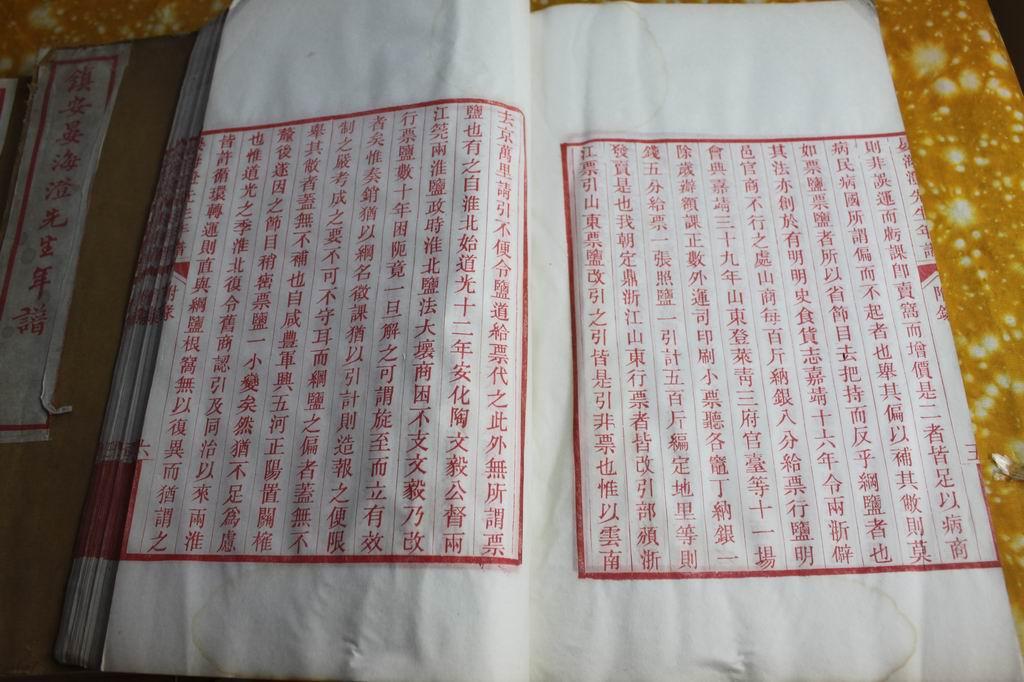 晏海澄先生年譜
附錄
五
則非誤運而虧課即賣窩而增價是二者皆足以病商
病民病國所謂偏而不起者也舉其偏以補其敝則莫
如票鹽票鹽者所以省節目去把持而反乎綱鹽者也
其法亦創於有明明史食貨志嘉靖十六年令兩浙僻
邑官商不行之處山商每百斤納銀八分給票行鹽明
會典嘉靖三十九年山東登萊靑三府官臺等十一場
除歲辦額課正數外運司印刷小票聽各竈丁納銀一
錢五分給票一張照鹽一引計五百斤編定地里等則
發賣是也我朝定鼎浙江山東行票者皆改引部頒浙
江票引山東票鹽改引之引皆是引非票也惟以雲南
去京萬里請引不便令鹽道給票代之此外無所謂票
鹽也有之自淮北始道光十二年安化陶文毅公督兩
江筦兩淮鹽政時淮北鹽法大壞商困不支文毅乃改
行票鹽數十年困阨竟一旦解之可謂旋至而立有效
者矣惟奏銷猶以綱名徵課猶以引計則造報之便限
制之嚴考成之要不可不守耳而綱鹽之偏者蓋無不
舉其敝者蓋無不補也自咸豐軍興五河正陽置關榷
釐後運因之節目稍密票鹽一小變矣然猶不足爲慮
也惟道光之季淮北復令舊商認引及同治以來兩淮
皆許循環轉運則直與綱鹽根窩無以復異而猶謂之
附錄
六
鎮安晏海澄先生年譜